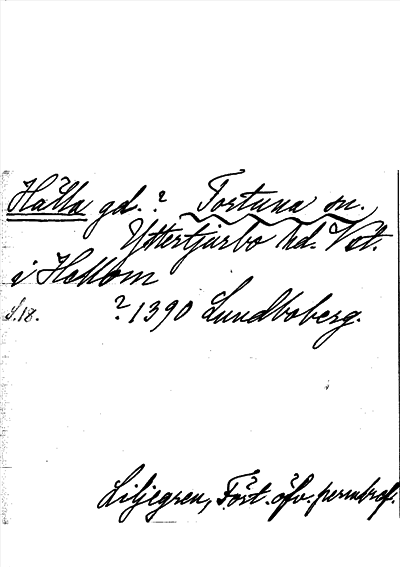 Hålla gd. ? Tortuna sn.
Yttertjurbo hd. Vst.
i Hollom
s.18. ? 1390 Lundboberg.
Liljegren, Fört. öfv. permbref.